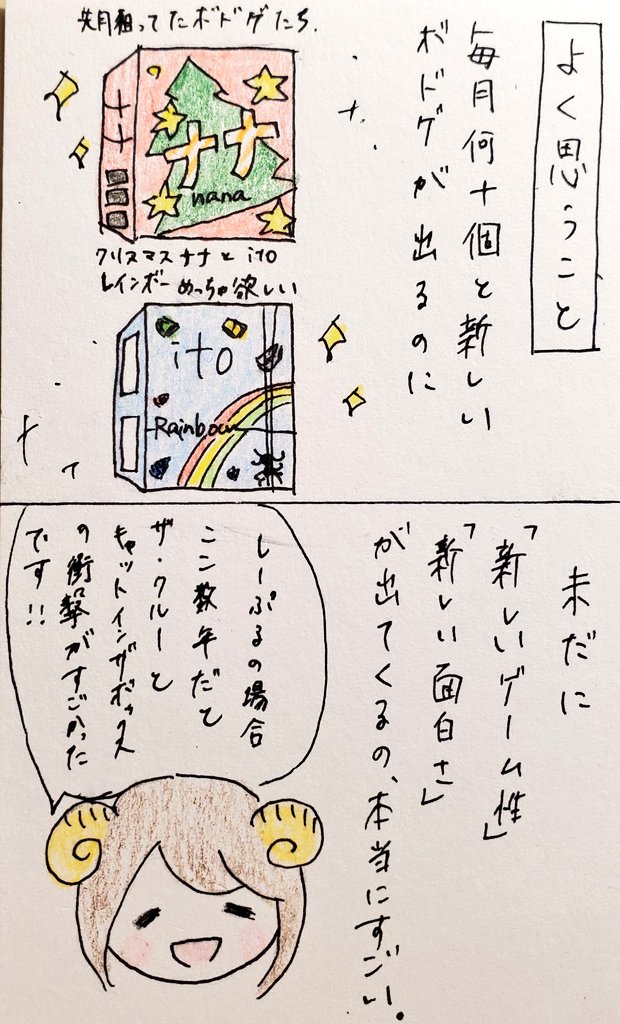 よく思うこと
毎月何十個と新しい
ボドゲが出るのに
先月狙ってたボドゲたち.
ナナ
ナナ
nana
クリスマスナナと ito
レインボー めっちゃ欲しい
ito
Rainbow
未だに
「新しいゲーム性」
「新しい面白さ」
が出てくるの、本当にすごい.
しーぷるの場合
ここ数年だと
ザ・クルーと
キャットインザボックス
の衝撃がすごかった
です!!